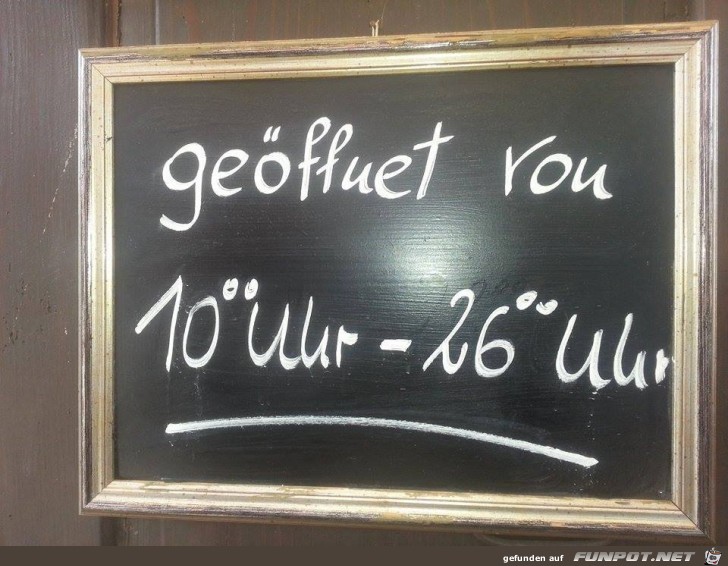 geöffnet von
10⁰⁰ Uhr - 26⁰⁰ Uhr
gefunden auf FUNPOT.NET